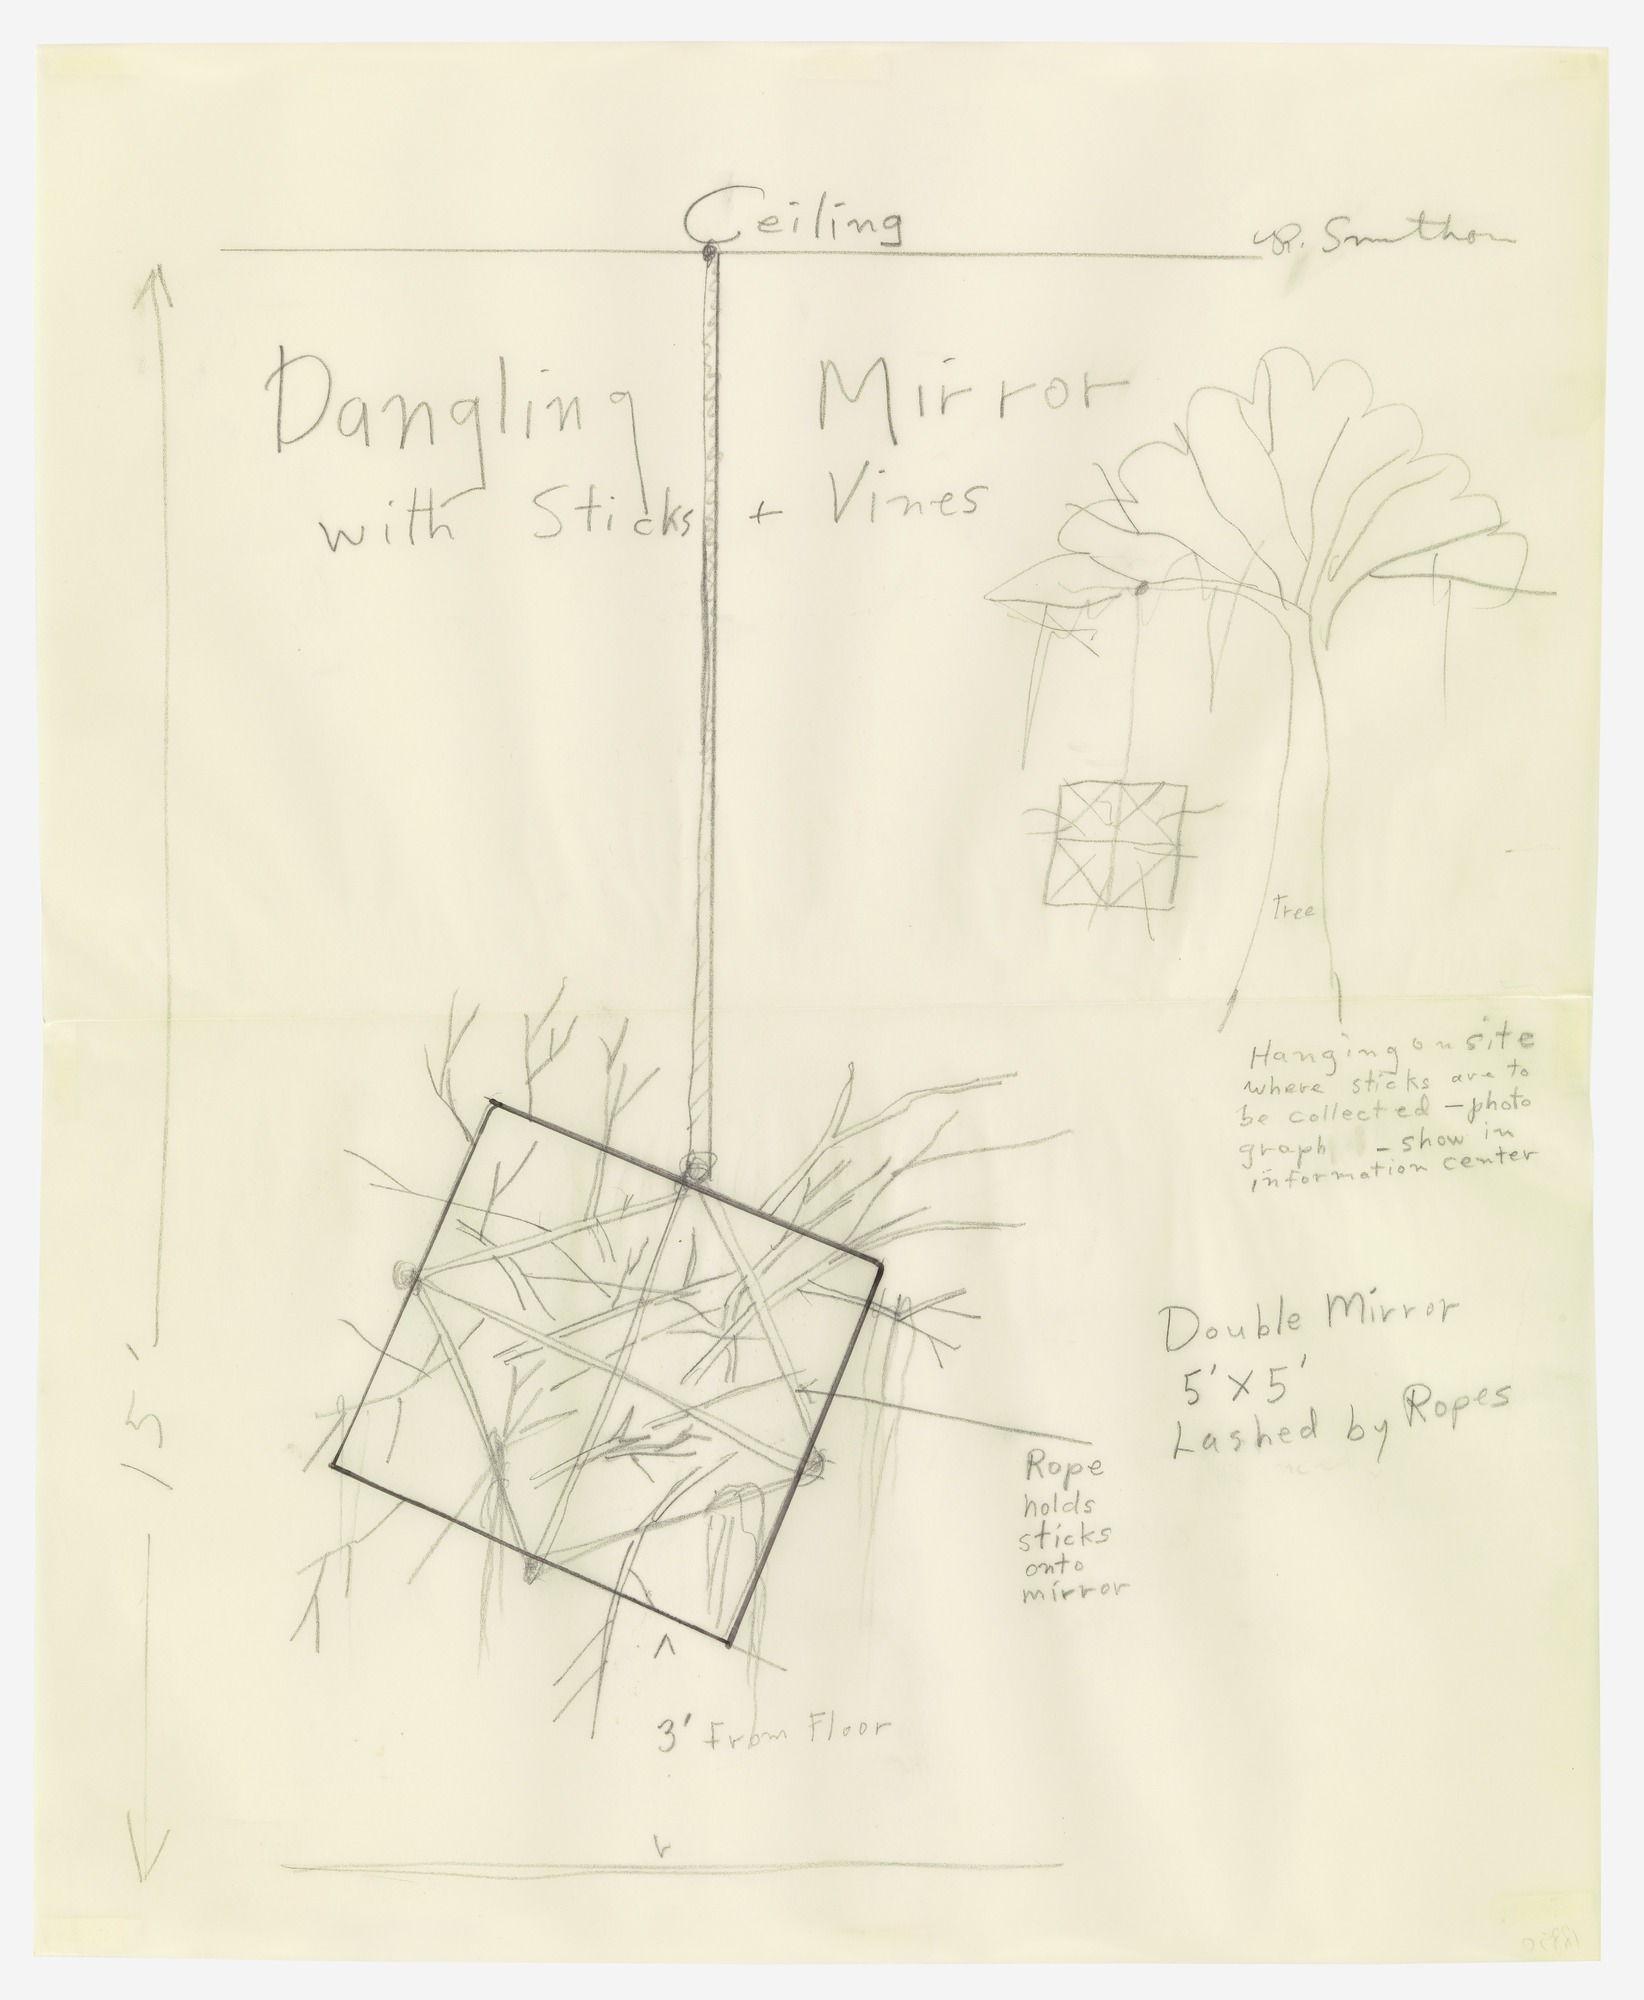 Ceiling
R. Smithson
Dangling Mirror
with Sticks + Vines
Tree
Hanging on site
where sticks are to
be collected – photo
graph – show in
information center
Double Mirror
5' X 5'
Lashed by Ropes
15'
Rope
holds
sticks
onto
mirror
3' From Floor